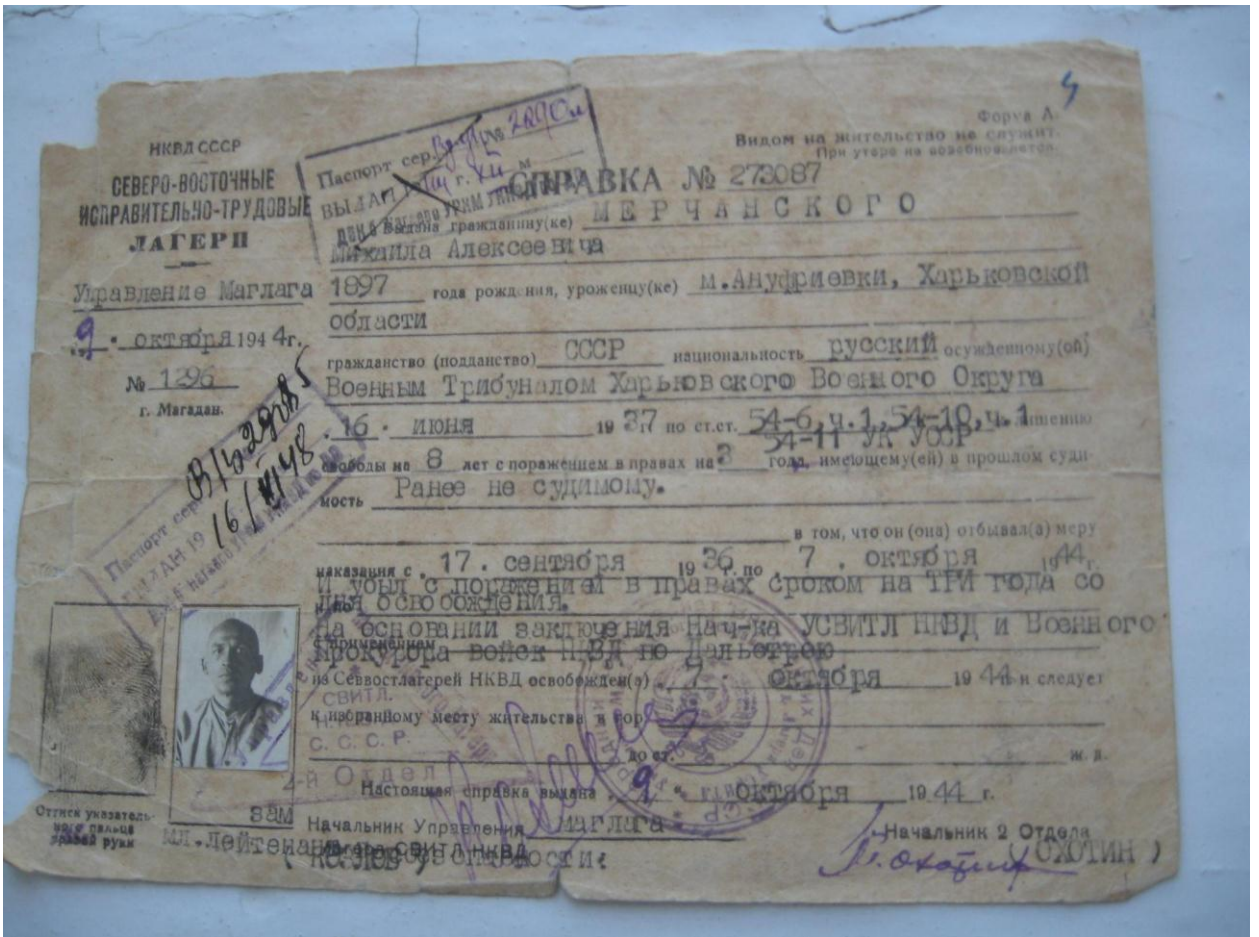 4
Форма А.
Видом на жительство не служит.
При утере не возобновляется.
НКВД СССР
СЕВЕРО-ВОСТОЧНЫЕ
ИСПРАВИТЕЛЬНО-ТРУДОВЫЕ
ЛАГЕРИ
Управление Маглага
9 " октября 1944г.
№ 1296
г. Магадан.
Паспорт сер. № 2890
ВЫДАН г. XII м
СПРАВКА № 273087
Выдана гражданину(ке) МЕРЧАНСКОГО
Михаила Алексеевича
1897 года рождения, уроженцу(ке) м.Ануфриевки, Харьковской
области
гражданство (подданство) СССР национальность русский осужденному(ой)
Военным Трибуналом Харьковского Военного Округа
"16" июня 1937г по ст.ст. 54-6,ч.1,54-10,ч.1 к лишению
54-11 УК УССР
свободы на 8 лет с поражением в правах на 3 года, имеющему(ей) в прошлом суди-
мость Ранее не судимому.
в том, что он (она) отбывал(а) меру
наказания с "17" сентября 1936г. по "7" октября 1944г.
И убыл с поражением в правах сроком на ТРИ года со
дня освобождения.
На основании заключения Нач-ка УСВИТЛ НКВД и Военного
с применением
прокурора войск НКВД по Дальстрою
из Севвостлагерей НКВД освобожден(а) "7" октября 1944 и следует
к избранному месту жительства в гор
до ст. ж. д.
Настоящая справка выдана "9" октября 1944 г.
Паспорт сер.
16/XI 48
СВИТЛ.
Н.К.В.Д.
С.С.С.Р.
2-й Отдел
Оттиск указатель-
ного пальца
правой руки
зам Начальник Управления Маглага
мл.лейтенант госбезопасности:
СВИТЛ НКВД
( КОЗЛОВ )
Начальник 2 Отдела
( ОХОТИН )